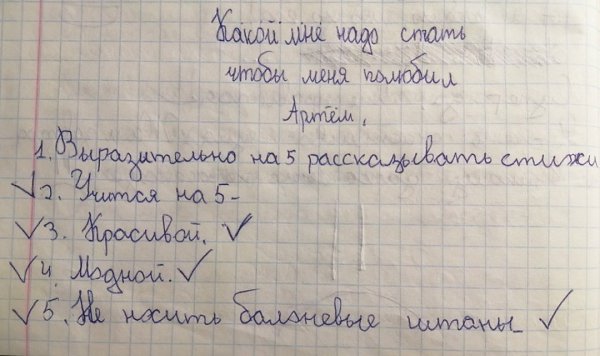 Какой мне надо стать
чтобы меня полюбил
Артём.
1. Выразительно на 5 рассказывать стихи
✓2. Учится на 5-
✓3. Красивой. ✓
✓4. Модной. ✓
✓5. Не носить балоневые штаны ✓